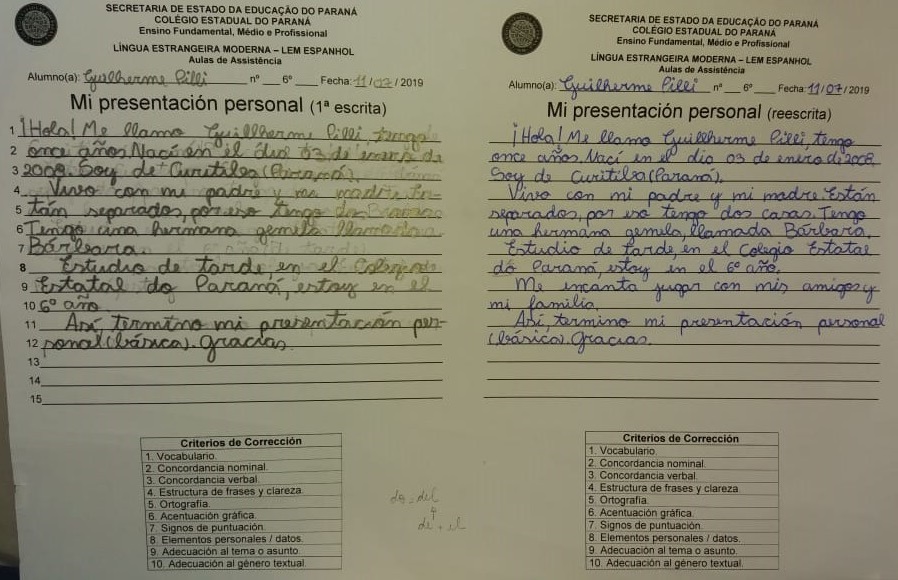 SECRETARIA DE ESTADO DA EDUCAÇÃO DO PARANÁ
COLÉGIO ESTADUAL DO PARANÁ
Ensino Fundamental, Médio e Profissional
LÍNGUA ESTRANGEIRA MODERNA – LEM ESPANHOL
Aulas de Assistência
Alumno(a): Guilherme Pilli nº 6º Fecha: 11/07/2019
Mi presentación personal (1ª escrita)
1 ¡Hola! Me llamo Guillherme Pilli, tengo
2 once años. Nací en el dia 03 de enero de
3 2008. Soy de Curitiba (Paraná).
4 Vivo con mi padre y mi madre. Es-
5 tám separados, por eso tengo dos
6 Tengo una hermana gemela llamada
7 Bárbara.
8 Estudio de tarde, en el Colegio
9 Estatal do Paraná, estoy en el
10 6º año.
11 Así, termino mi presentación per-
12 sonal (básica). Gracias.
13
14
15
Criterios de Corrección
1. Vocabulario.
2. Concordancia nominal.
3. Concordancia verbal.
4. Estructura de frases y clareza.
5. Ortografía.
6. Acentuación gráfica.
7. Signos de puntuación.
8. Elementos personales / datos.
9. Adecuación al tema o asunto.
10. Adecuación al género textual.
del
de + el
SECRETARIA DE ESTADO DA EDUCAÇÃO DO PARANÁ
COLÉGIO ESTADUAL DO PARANÁ
Ensino Fundamental, Médio e Profissional
LÍNGUA ESTRANGEIRA MODERNA – LEM ESPANHOL
Aulas de Assistência
Alumno(a): Guilherme Pilli nº 6º Fecha: 11/07/2019
Mi presentación personal (reescrita)
¡Hola! Me llamo Guillherme Pilli, tengo
once años. Nací en el dia 03 de enero de 2008.
Soy de Curitiba (Paraná).
Vivo con mi padre y mi madre. Están
separados, por eso tengo dos casas. Tengo
una hermana gemela, llamada Bárbara.
Estudio de tarde, en el Colegio Estatal
do Paraná, estoy en el 6º año.
Me encanta jugar con mis amigos y
mi familia.
Así, termino mi presentación personal
(básica). Gracias.
Criterios de Corrección
1. Vocabulario.
2. Concordancia nominal.
3. Concordancia verbal.
4. Estructura de frases y clareza.
5. Ortografía.
6. Acentuación gráfica.
7. Signos de puntuación.
8. Elementos personales / datos.
9. Adecuación al tema o asunto.
10. Adecuación al género textual.